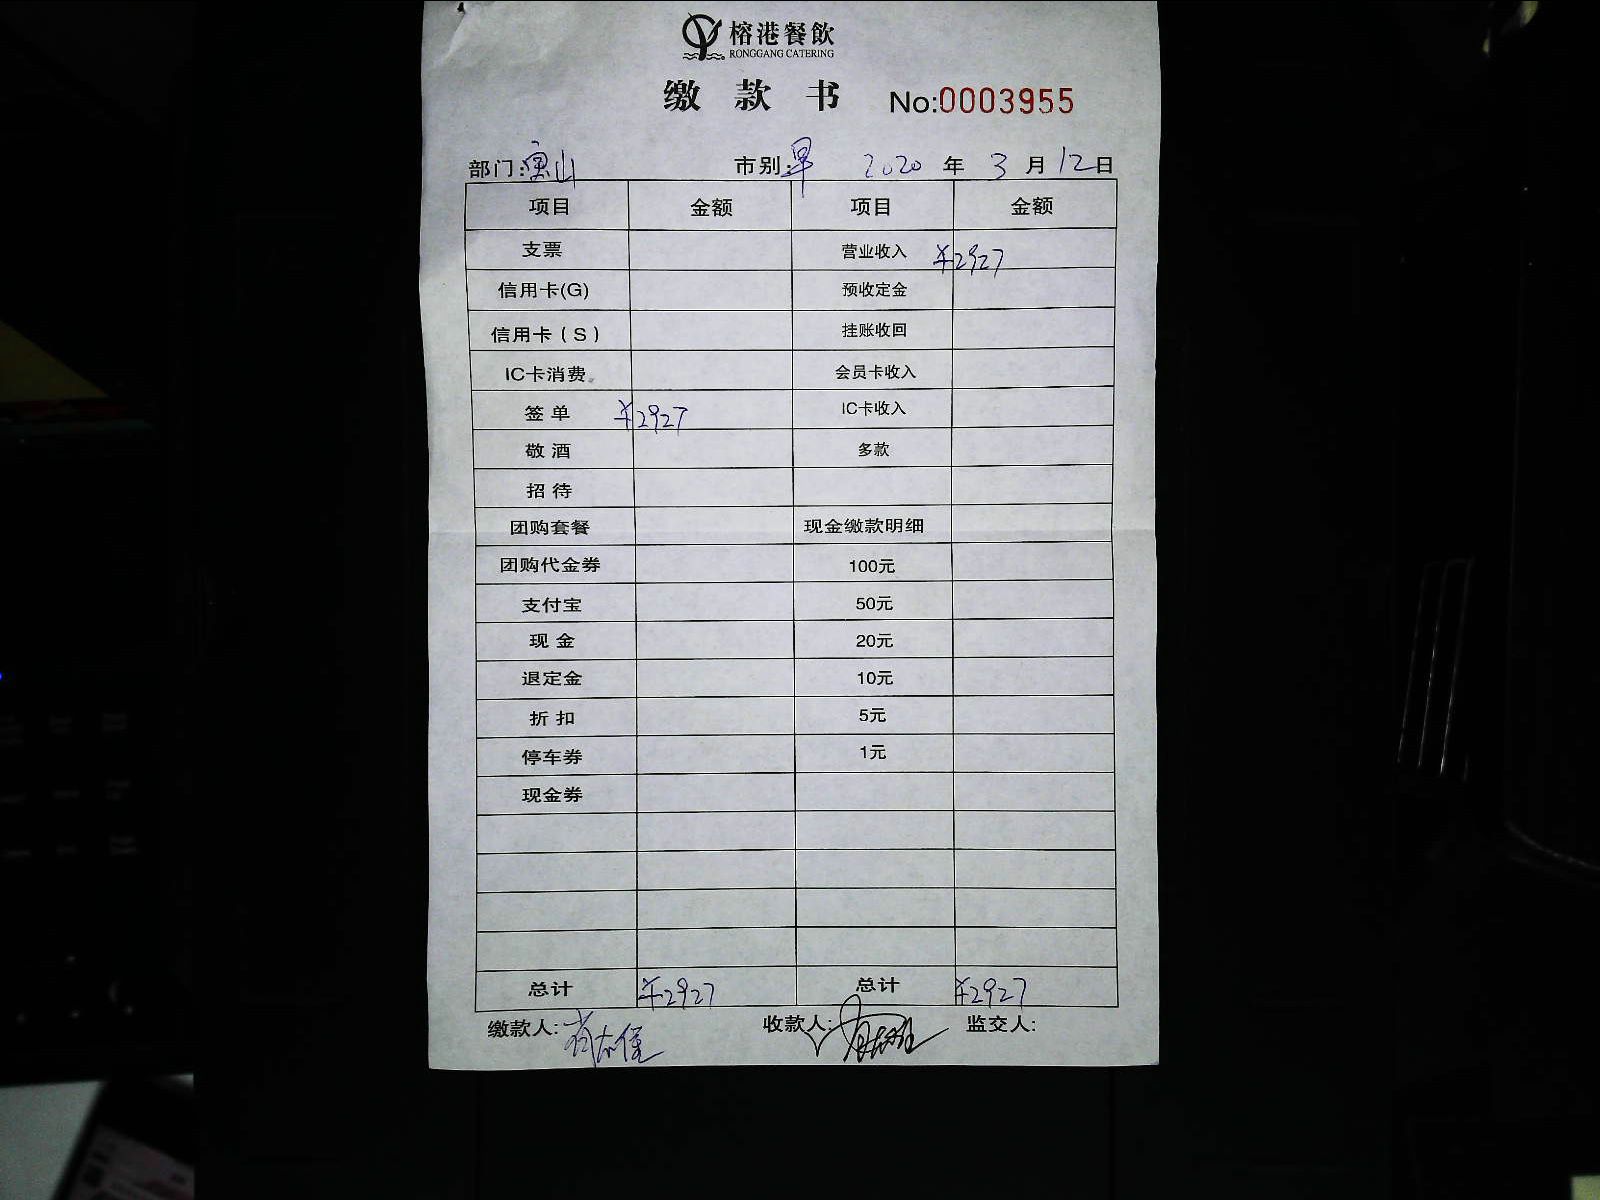 榕港餐飲
RONGGANG CATERING
缴款书 No:0003955
部门: 市别:早 2020年3月12日
项目 金额 项目 金额
支票 营业收入 ¥2927
信用卡(G) 预收定金
信用卡(S) 挂账收回
IC卡消费 会员卡收入
签单 ¥2927 IC卡收入
敬酒 多款
招待
团购套餐 现金缴款明细
团购代金券 100元
支付宝 50元
现金 20元
退定金 10元
折扣 5元
停车券 1元
现金券
总计 ¥2927 总计 ¥2927
缴款人: 收款人: 监交人: